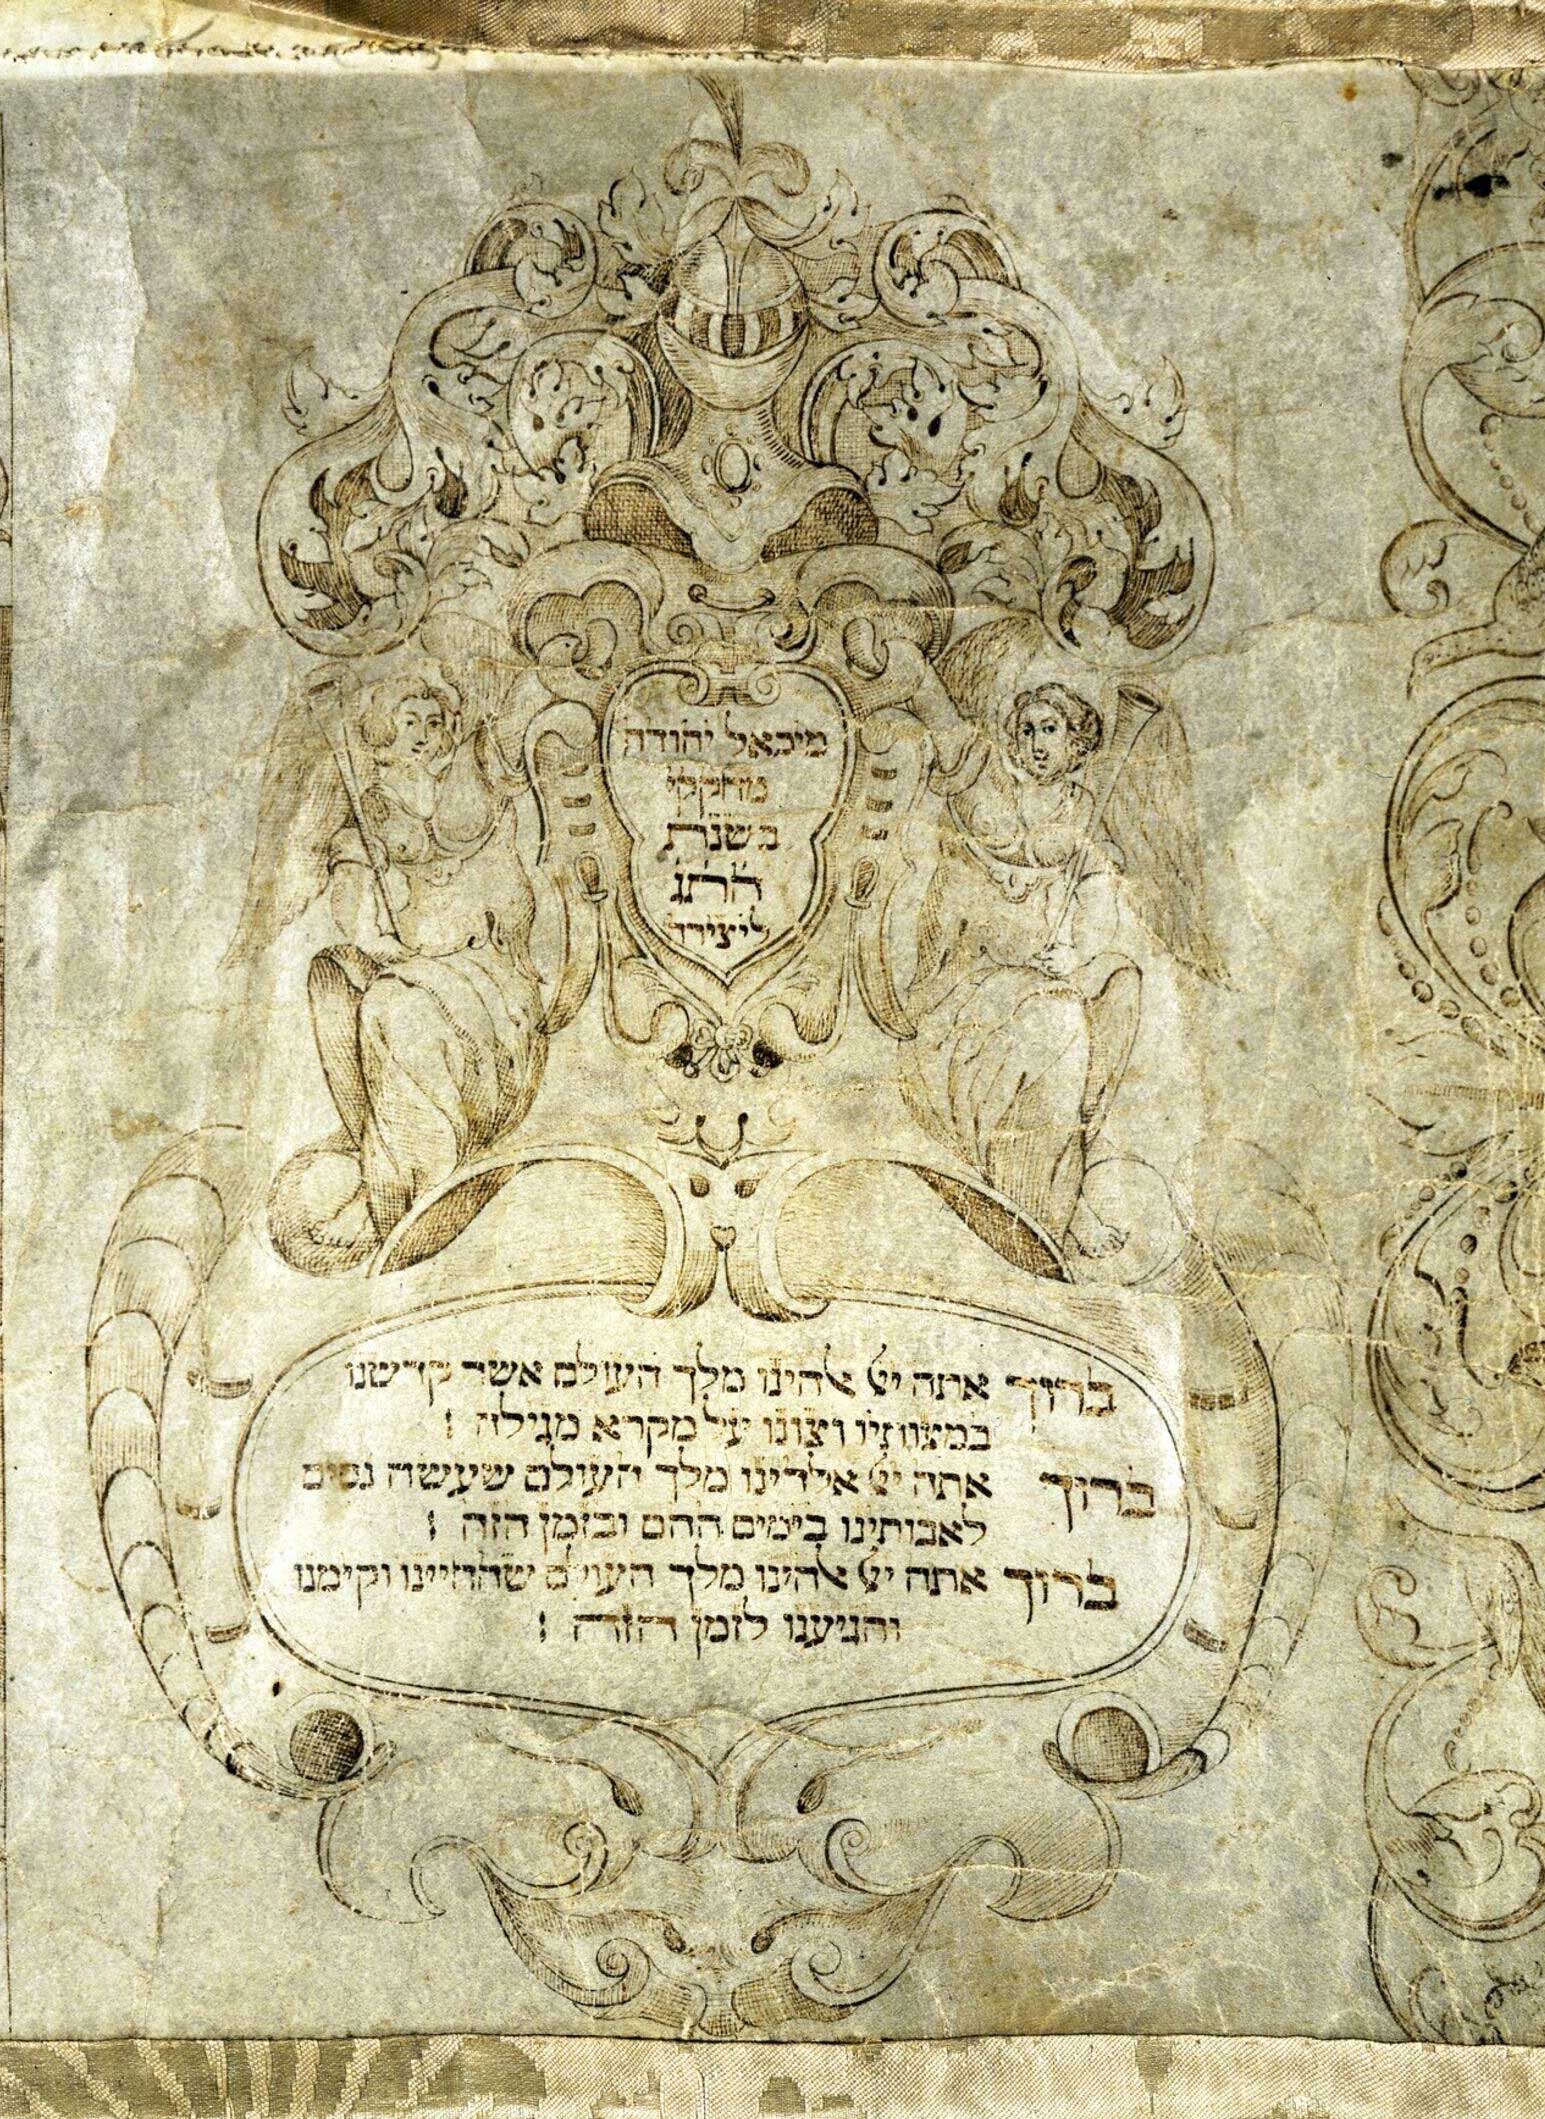 מיכאל יהודה
מחקקי
בשנת
התג
ליצירה
ברוך אתה יי אלהינו מלך העולם אשר קדשנו
במצותיו וצונו על מקרא מגילה :
ברוך אתה יי אלהינו מלך העולם שעשה נסים
לאבותינו בימים ההם ובזמן הזה :
ברוך אתה יי אלהינו מלך העולם שהחיינו וקימנו
והגיענו לזמן הזה :